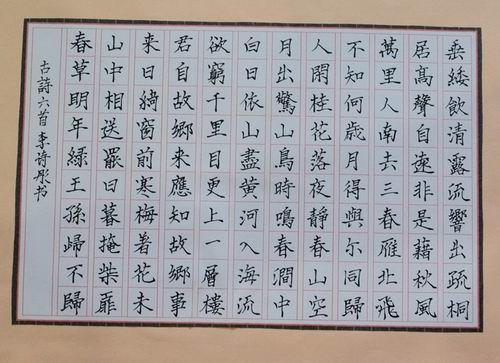 垂緌飲清露流響出疏桐
居髙聲自遠非是藉秋風
萬里人南去三春雁北飛
不知何歲月得與尔同歸
人閑桂花落夜靜春山空
月出驚山鳥時鳴春澗中
白日依山盡黃河入海流
欲窮千里目更上一層樓
君自故鄉来應知故鄉事
来日綺窗前寒梅著花未
山中相送罷日暮掩柴扉
春草明年緑王孫歸不歸
古詩六首 李诗彤书